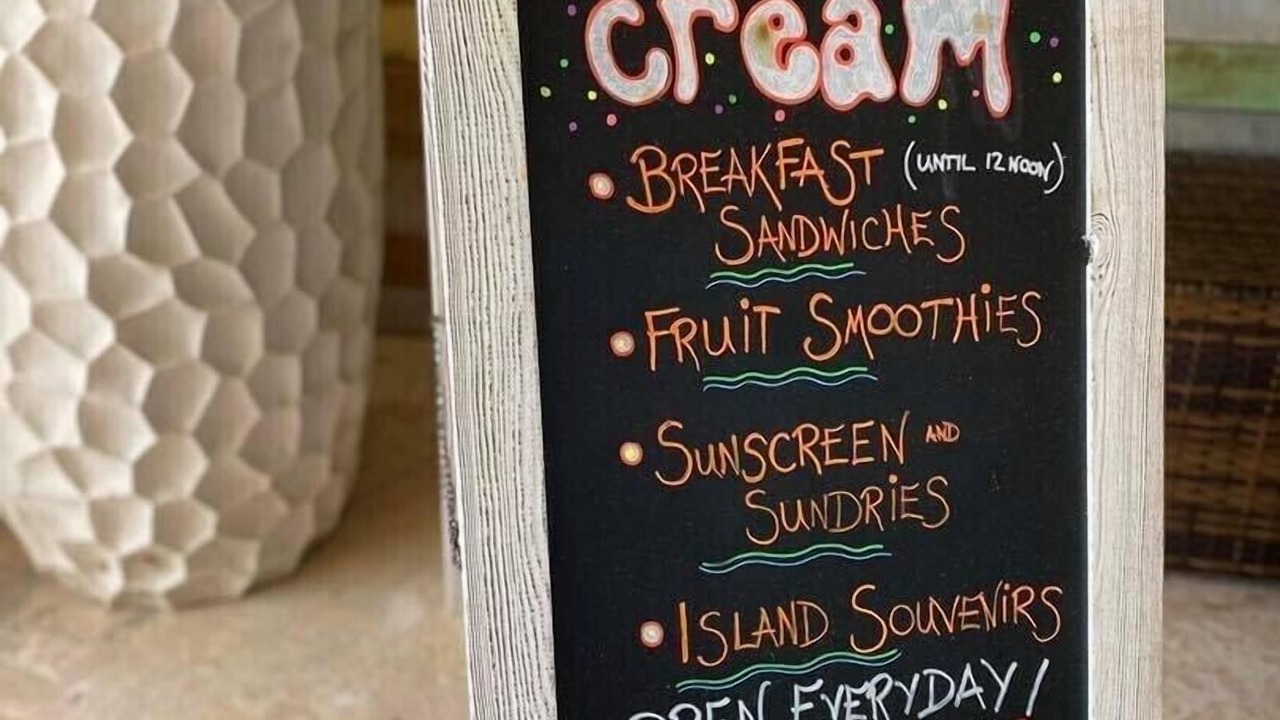 cream
• BREAKFAST (UNTIL 12 NOON)
SANDWICHES
• FRUIT SMOOTHIES
• SUNSCREEN AND
SUNDRIES
• ISLAND SOUVENIRS
OPEN EVERYDAY!